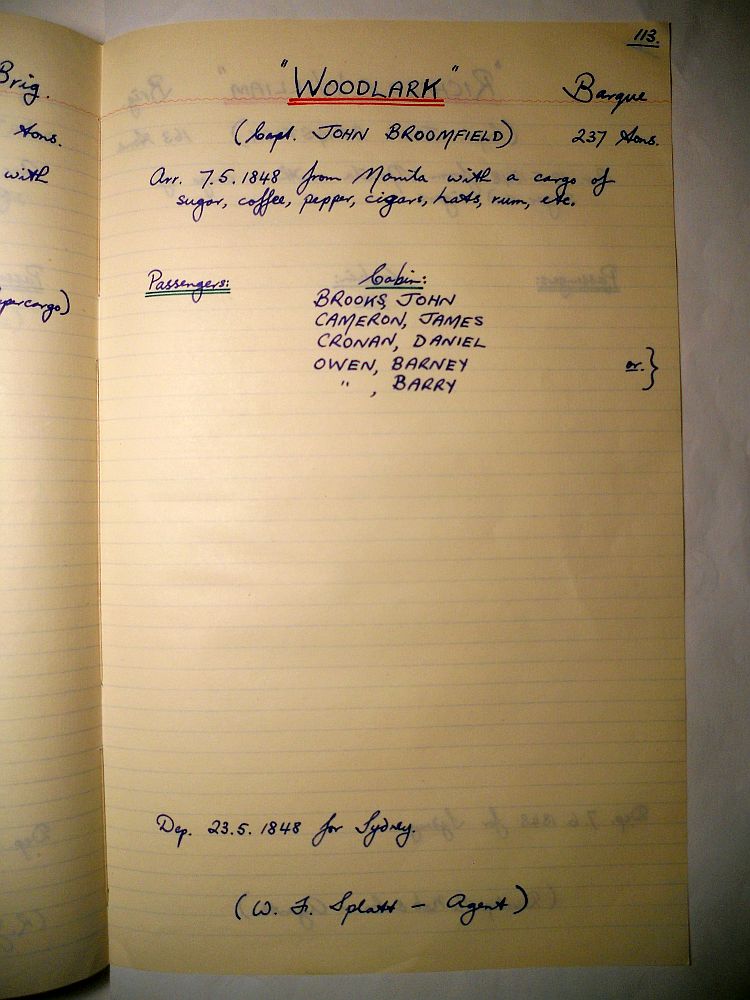 Brig.
tons.
with
percargo)
113.
"WOODLARK" Barque
(Capt. JOHN BROOMFIELD) 237 tons.
Arr. 7.5.1848 from Manila with a cargo of
sugar, coffee, pepper, cigars, hats, rum, etc.
Passengers: Cabin:
BROOKS, JOHN
CAMERON, JAMES
CRONAN, DANIEL
OWEN, BARNEY or. }
" , BARRY
Dep. 23.5.1848 for Sydney.
(W. F. Splatt - Agent)